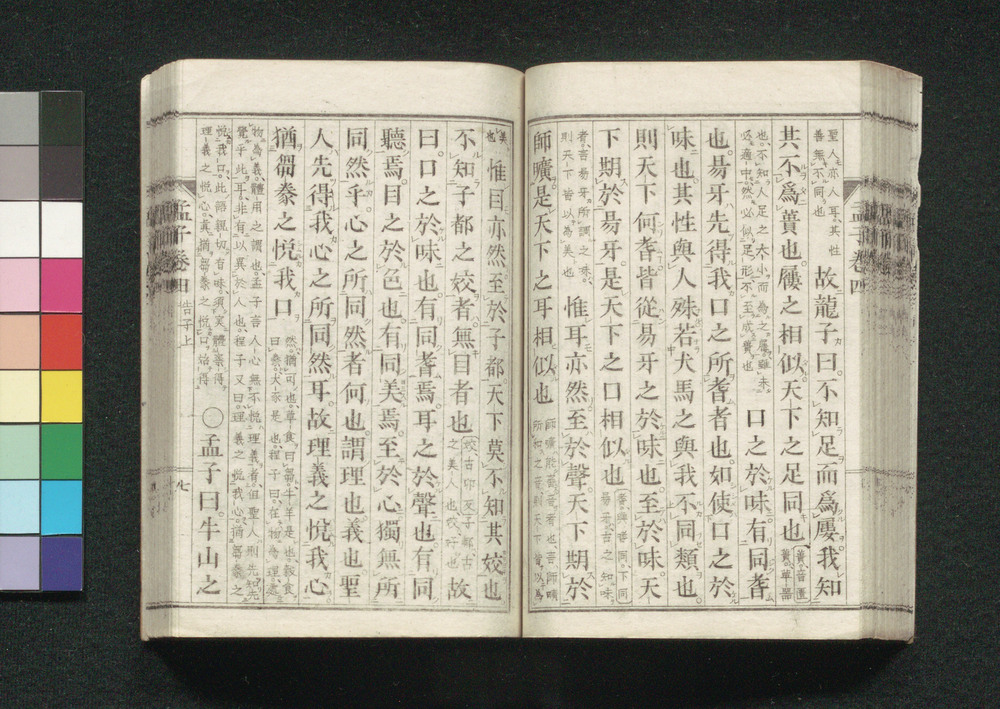 聖人亦人耳其性
善無不同也
故龍子曰不知足而爲屨我知
其不爲蕢也屨之相似天下之足同也
蕢音匱
蕢草器
也不知人足之大小而為之屨雖未
必適中然必似足形不至成蕢也
口之於味有同耆
也易牙先得我口之所耆者也如使口之於
味也其性與人殊若犬馬之與我不同類也
則天下何耆皆從易牙之於味也至於味天
下期於易牙是天下之口相似也
耆與嗜同下同
易牙古之知味
者言易牙所調之味
則天下皆以為美也
惟耳亦然至於聲天下期於
師曠是天下之耳相似也
師曠能審音者也言師曠
所和之音則天下皆以為
美
也
惟目亦然至於子都天下莫不知其姣也
不知子都之姣者無目者也
姣古卯反子都古
之美人也姣好也
故
曰口之於味也有同耆焉耳之於聲也有同
聽焉目之於色也有同美焉至於心獨無所
同然乎心之所同然者何也謂理也義也聖
人先得我心之所同然耳故理義之悅我心
猶芻豢之悅我口
然猶可也草食曰芻牛羊是也穀食
曰豢犬豕是也程子曰在物為理處
物為義體用之謂也孟子言人心無不悅理義者但聖人則先知先
覺乎此耳非有以異於人也程子又曰理義之悅我心猶芻豢之
悅我口此語親切有味須實體察得
理義之悅心真猶芻豢之悅口始得
○孟子曰牛山之
孟子卷四
告子上
七
孟子卷四